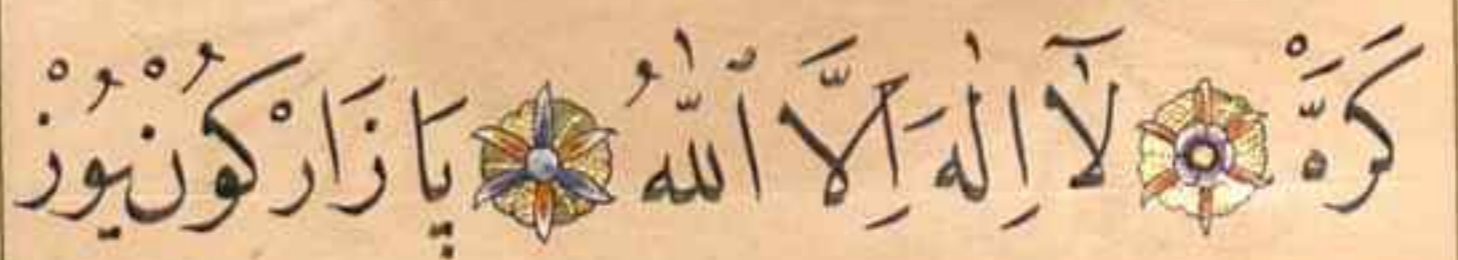 كَرَّهْ لَٓا اِلٰهَ اِلَّا ٱللّٰهُ پَازَارْ كُونْ يُوزْ